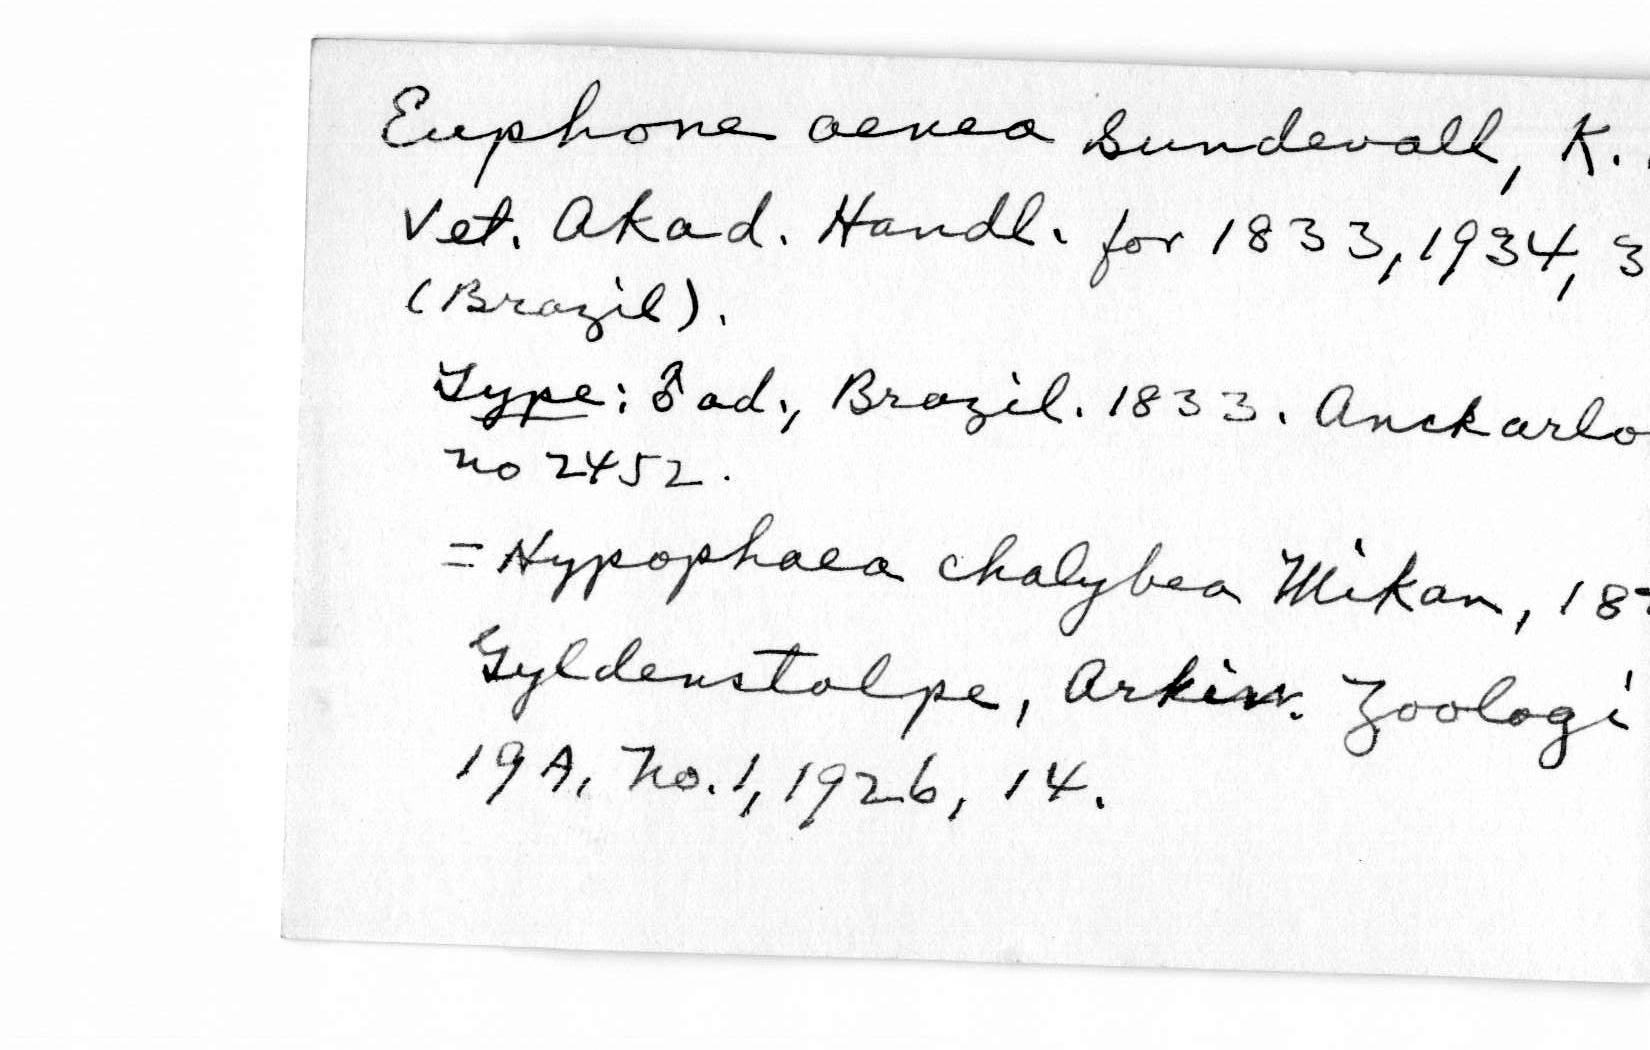 Euphone aenea Sundevall, K.
Vet. Akad. Handl. for 1833, 1934, 3
(Brazil).
Type: ♂ ad., Brazil. 1833. Anckarlo
no 2452.
= Hypophaea chalybea Mikan, 18
Gyldenstolpe, Arkiv. Zoologi
19A, No. 1, 1926, 14.